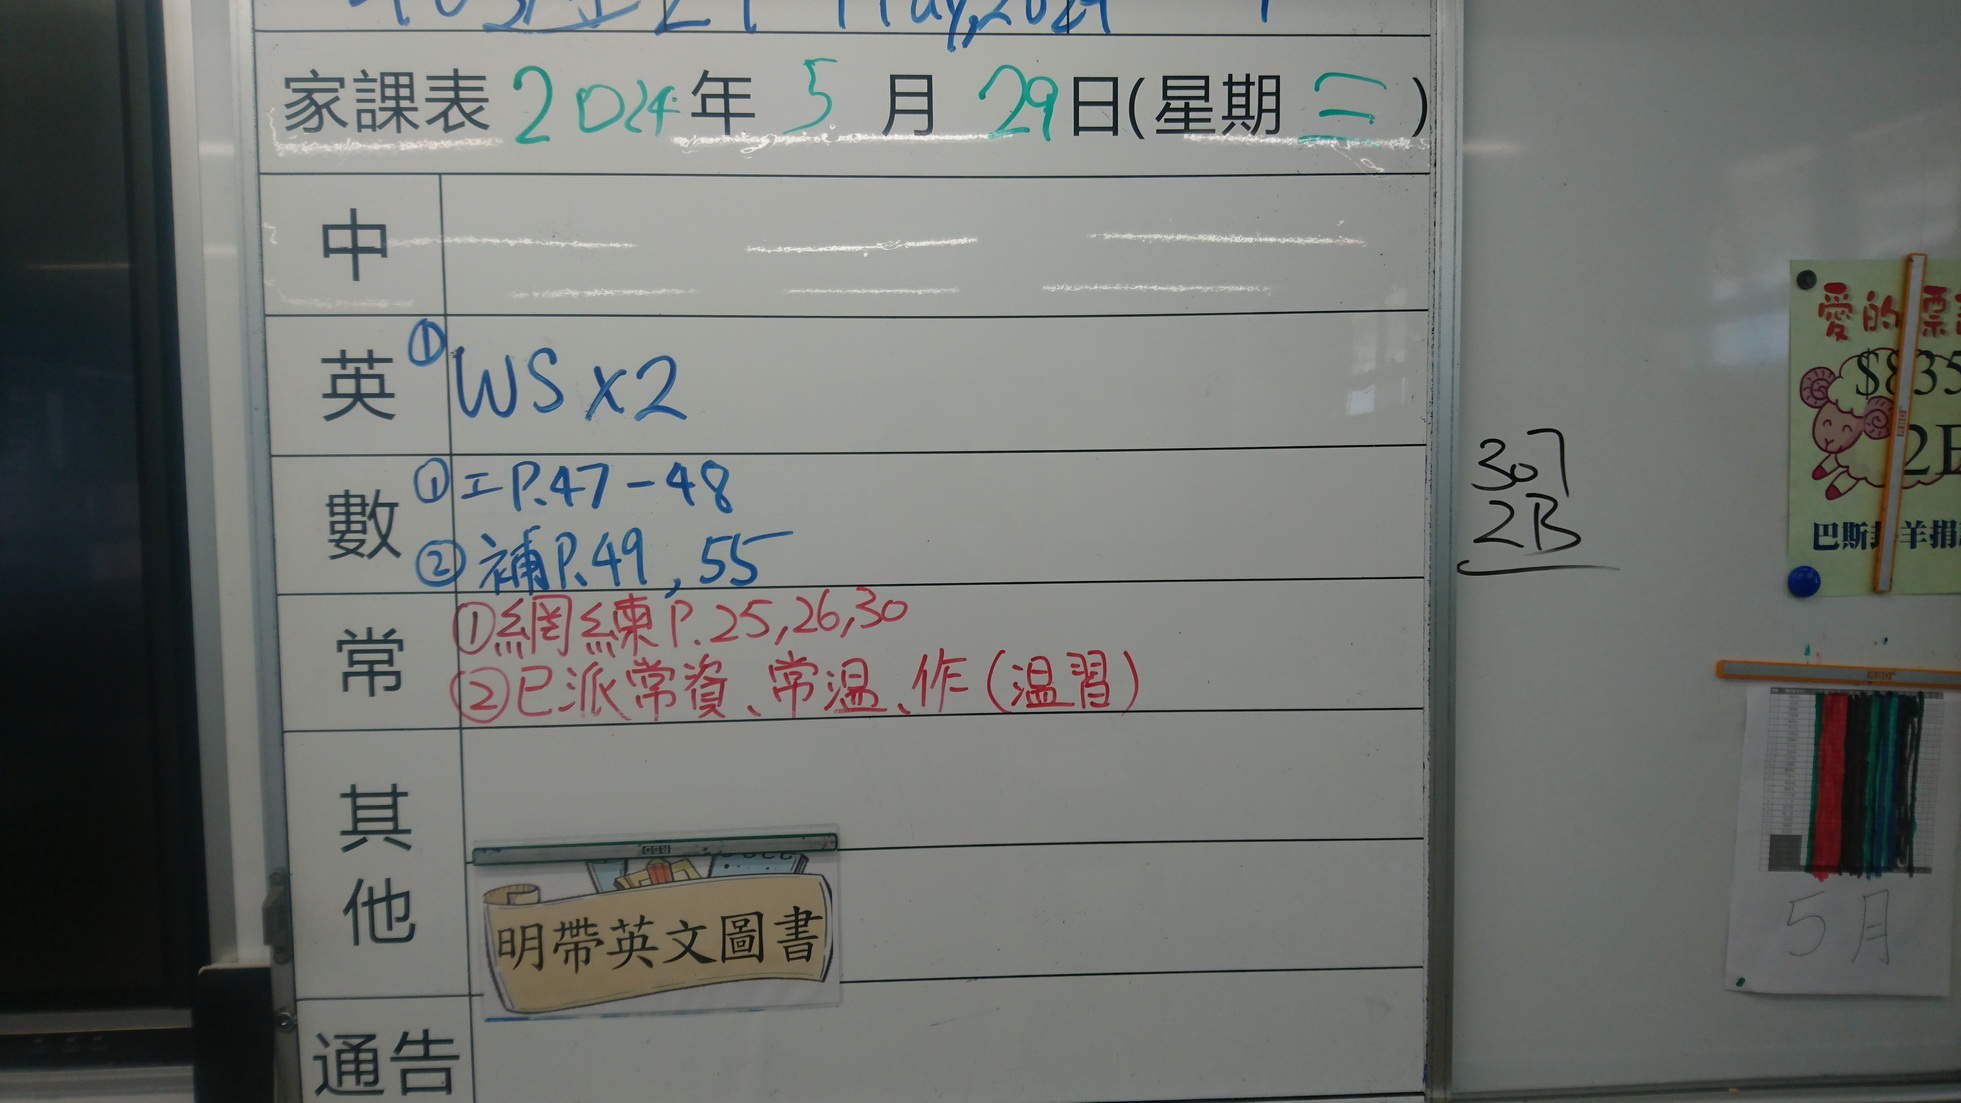 家課表 2024年 5月 29日(星期三)
中
英 ① WS x2
數 ① 工P.47-48
② 補P.49, 55
常 ①網練P.25,26,30
②已派常資、常溫、作(溫習)
其他
明帶英文圖書
通告
307
2B
愛的
$835
2B
巴斯
羊捐
5月